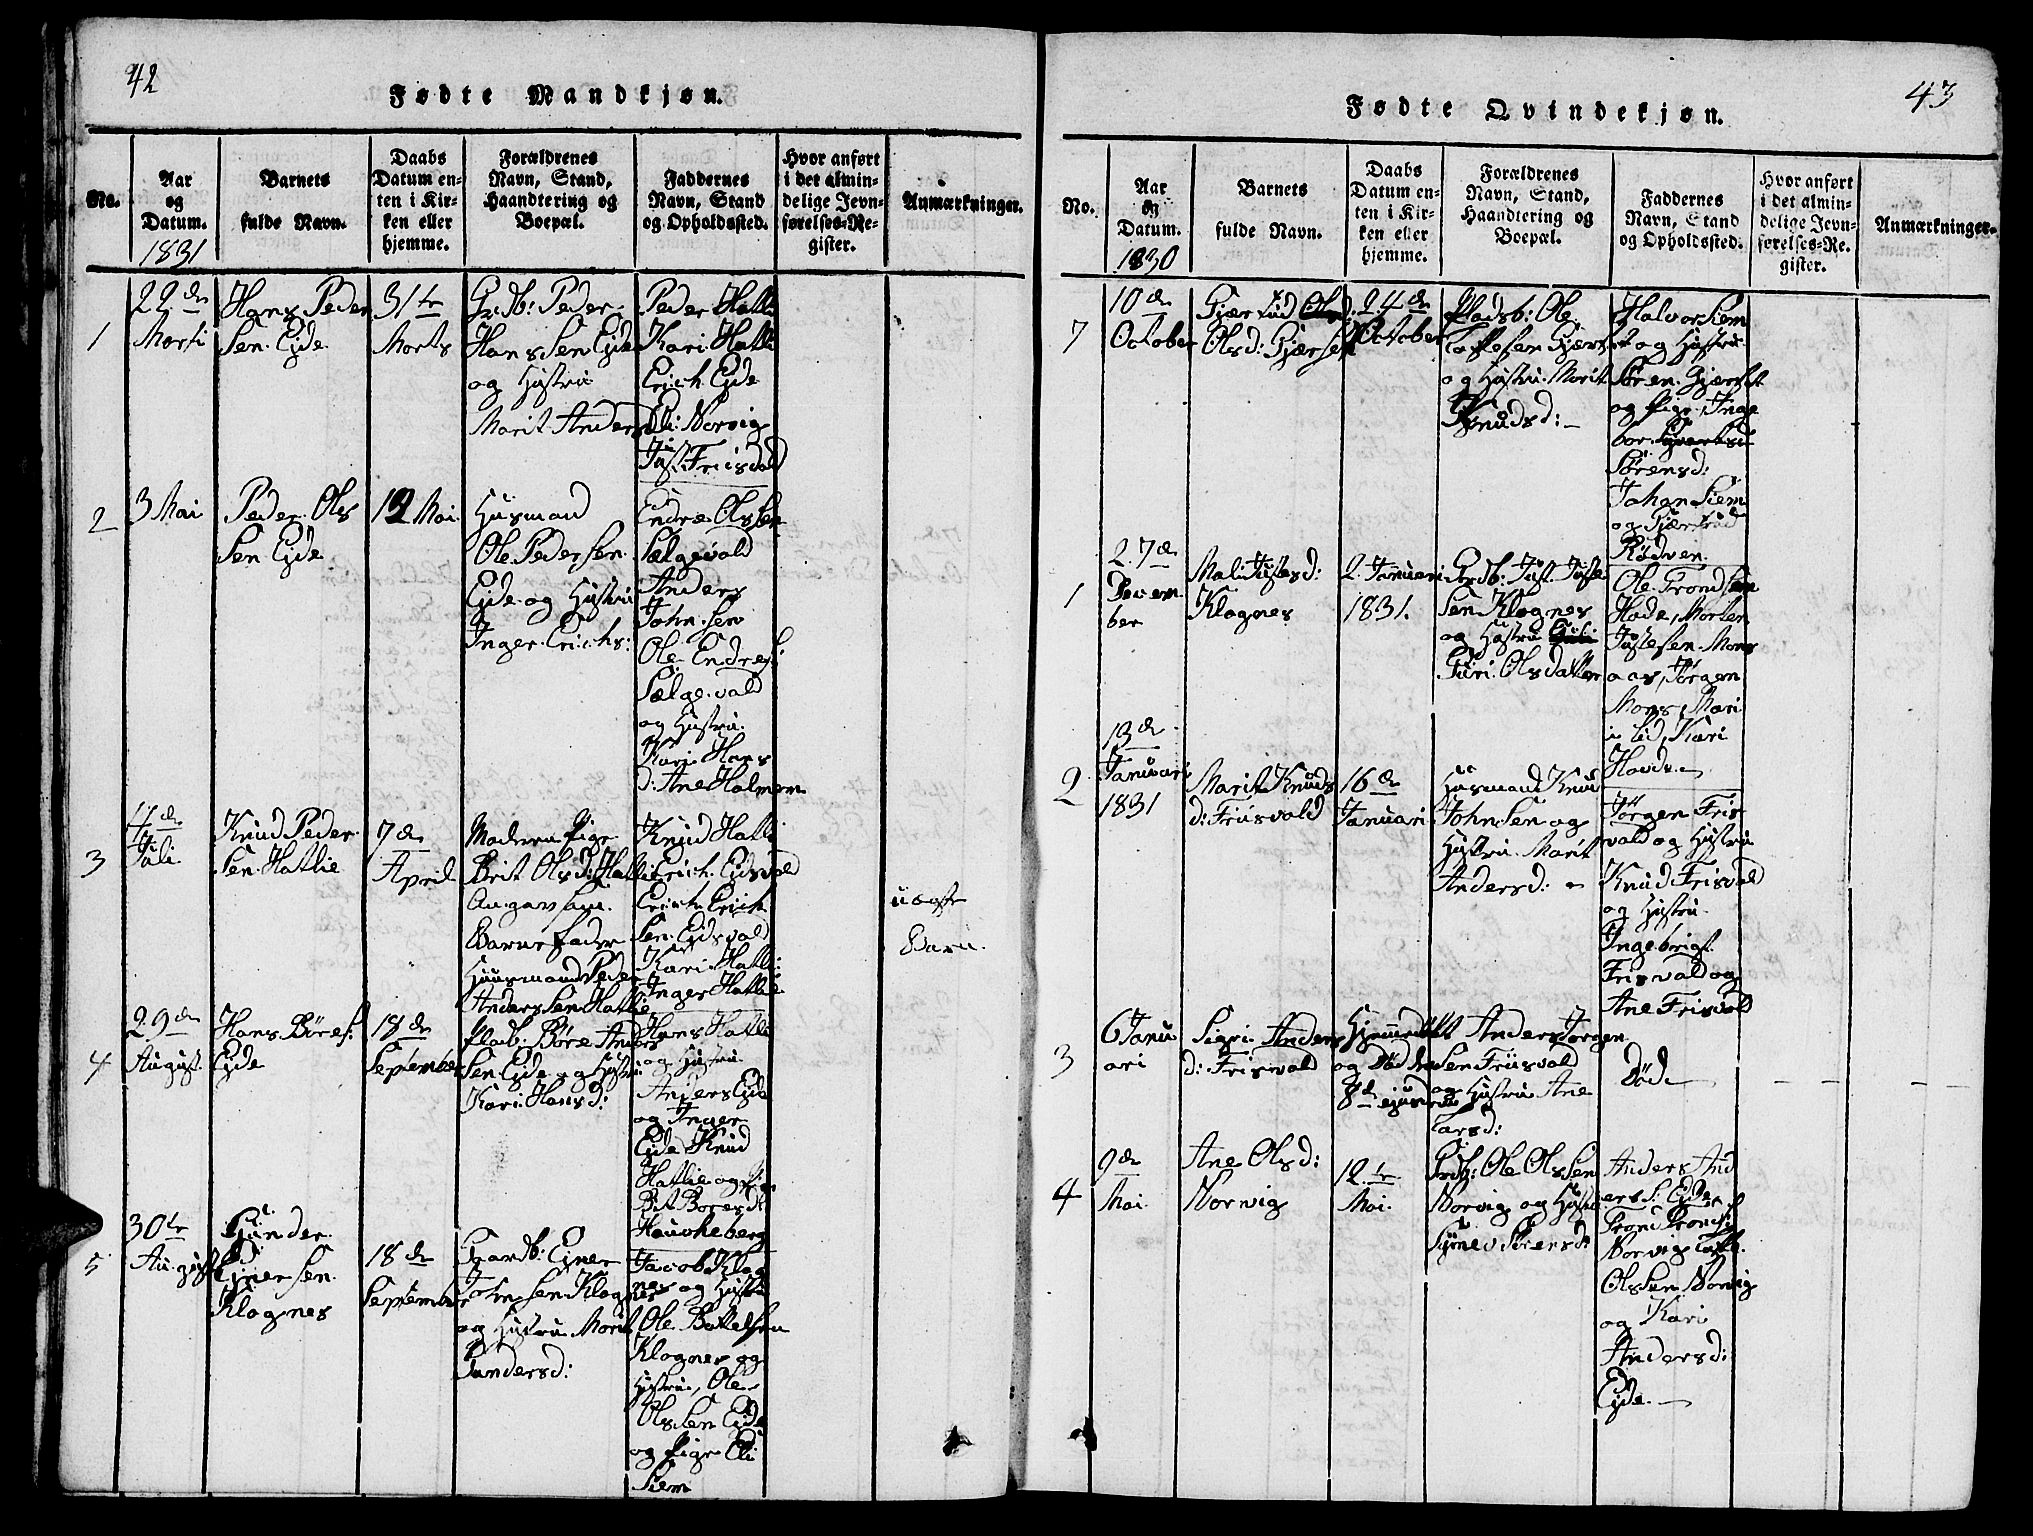 42
Fødte Mandkjøn.
No.
Aar
og
Datum.
1831
Barnets
fulde Navn.
Daabs
Datum en-
ten i Kir-
ken eller
hjemme.
Forældrenes
Navn, Stand,
Haandtering og
Boepæl.
Faddernes
Navn, Stand
og Opholdssted.
Hvor anført
i det almin-
delige Jevn-
førelses-Re-
gister.
Anmærkninger.
1
22de
Marti
Hans Peder
Sen Ejde
31te
Marts
Grdb: Peder
Hans Sen Ejde
og Hustru
Marit Anders
Peder Hatle
Kari Hatli
Erich Ejde
Eli Norvig
Just Friisvold
2
3 Mai
Peder Ols
Sen Ejde
12 Mai
Husmand
Ole Pedersen
Ejde og Hustru
Inger Erichs:
Endre Olssen
Sælgevald
Anders
John Sen
Ole Endres:
Sælgevald
og Hustru
Kari Hans
d: Ane Holmem
3
4de
Juli
Knud Peder
Sen Hatlie
7de
April
Moderen Pige
Brit Olsd: Hatli
Angav som
Barnefader
Huusmand Peder
Anders Sen Hatlie
Knud Hatli
Erich Eidsvold
Erich Erich
Sen Eidsvold
Kari Hatli
Inger Hatlie
uægte
Barn.
4
29de
August
Hans Böres:
Ejde
18de
September
Pladb: Böre Anders
Sen Ejde og Hustru
Kari Hansd:
Hans Hatli
og Hustru
Anders Ejde
og Inger
Ejde Knud
Hatlie og Pige
Brit Boresd:
Hauckeberg
5
30te
August
Gunder
Ejner Sen
Klognes
18de
September
Gaardb: Ejner
John Sen Klognes
og Hustru Marit
Gundersd:
Jacob Klog
nes og Hustru
Ole Bottelsen
Klognes og
Hustru, Ole
Ols Sen Ejde
og Pige Eli
Siem
43
Fødte Qvindekjøn.
No.
Aar
og
Datum.
1830
Barnets
fulde Navn.
Daabs
Datum en-
ten i Kir-
ken eller
hjemme.
Forældrenes
Navn, Stand,
Haandtering og
Boepæl.
Faddernes
Navn, Stand
og Opholdssted.
Hvor anført
i det almin-
delige Jevn-
førelses-Re-
gister.
Anmærkninger.
7
10de
October
Gjertrud Olsd
Olsd: Gjerset
24de
October
Pladsb: Ole
Tostesen Gjerset
og Hustru Marit
Knudsd:
Halvor Siem
og Hustru
Søren Gjerset
og Pige Inge
bor
Sørensd:
Johan Siem
og Gjertrud
Rödven
1
27de
Decem
ber
Mali Justesd:
Klognes
2 Januari
1831.
Grdb: Just Juste
Sen Klognes
og Hustru
Guri Olsdatter
Ole Trondsen
Hode, Morten
Justesen Mons
aas, Jörgen
Mons, Mari
i Lid, Kari
Hovde
2
13de
Januari
1831
Marit Knuds
d: Friisvold
16de
Januari
Husmand Knud
John Sen og
Hustru Marit
Andersd:
Jörgen Fris
vald og Hustru
Knud Frisvald
og Hustru
Ingebrigt
Frisvald og
Ane Frisvold
3
6 Janu
ari
Sigri Anders
d: Frisvold
Hjemmedöbt
og Död den
8de ejusdem
Anders Jorgen
Sen Friisvold
og Hustru Ane
Larsd:
Död
4
9de
Mai
Ane Olsd:
Norvig
12te
Mai
Grdb: Ole Ols Sen
Norvig og Hustru
Anders And
ers S: Ejde
Trond Tronds:
Norvig
Ols Sen Norvig
og Kari
Andersd:
Ejde.